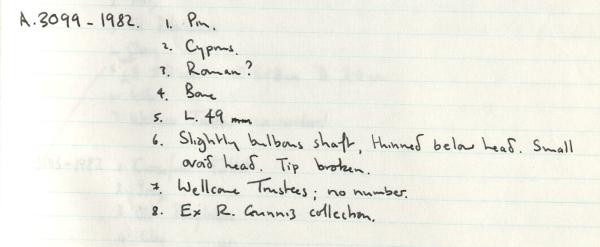 A.3099-1982. 1. Pin.
2. Cyprus.
3. Roman?
4. Bone
5. L. 49 mm
6. Slightly bulbous shaft, thinned below head. Small
ovoid head. Tip broken.
7. Wellcome Trustees; no number.
8. Ex R. Gunnis collection.